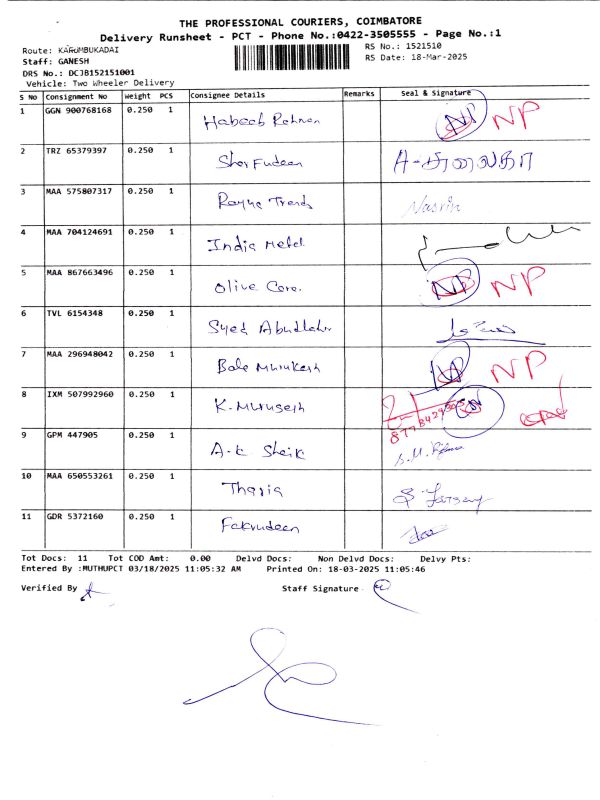 THE PROFESSIONAL COURIERS, COIMBATORE
Delivery Runsheet - PCT - Phone No.:0422-3505555 - Page No.:1
Route: KARUMBUKADAI
RS No.: 1521510
Staff: GANESH
RS Date: 18-Mar-2025
DRS No.: DCJB152151001
Vehicle: Two Wheeler Delivery
S No Consignment No Weight PCS Consignee Details Remarks Seal & Signature
1 GGN 900768168 0.250 1 Habeeb Rahman NP NP
2 TRZ 65379397 0.250 1
3 MAA 575807317 0.250 1 Nasrin
4 MAA 704124691 0.250 1 India Metal
5 MAA 867663496 0.250 1 Olive Care. NP NP
6 TVL 6154348 0.250 1 Syed
7 MAA 296948042 0.250 1 Bala Murukesh NP NP
8 IXM 507992960 0.250 1 K. Murugesh
9 GPM 447905 0.250 1 A-k Sheik
10 MAA 650553261 0.250 1
11 GDR 5372160 0.250 1 Fakrudeen
Tot Docs: 11 Tot COD Amt: 0.00 Delvd Docs: Non Delvd Docs: Delvy Pts:
Entered By :MUTHUPCT 03/18/2025 11:05:32 AM Printed On: 18-03-2025 11:05:46
Verified By Staff Signature